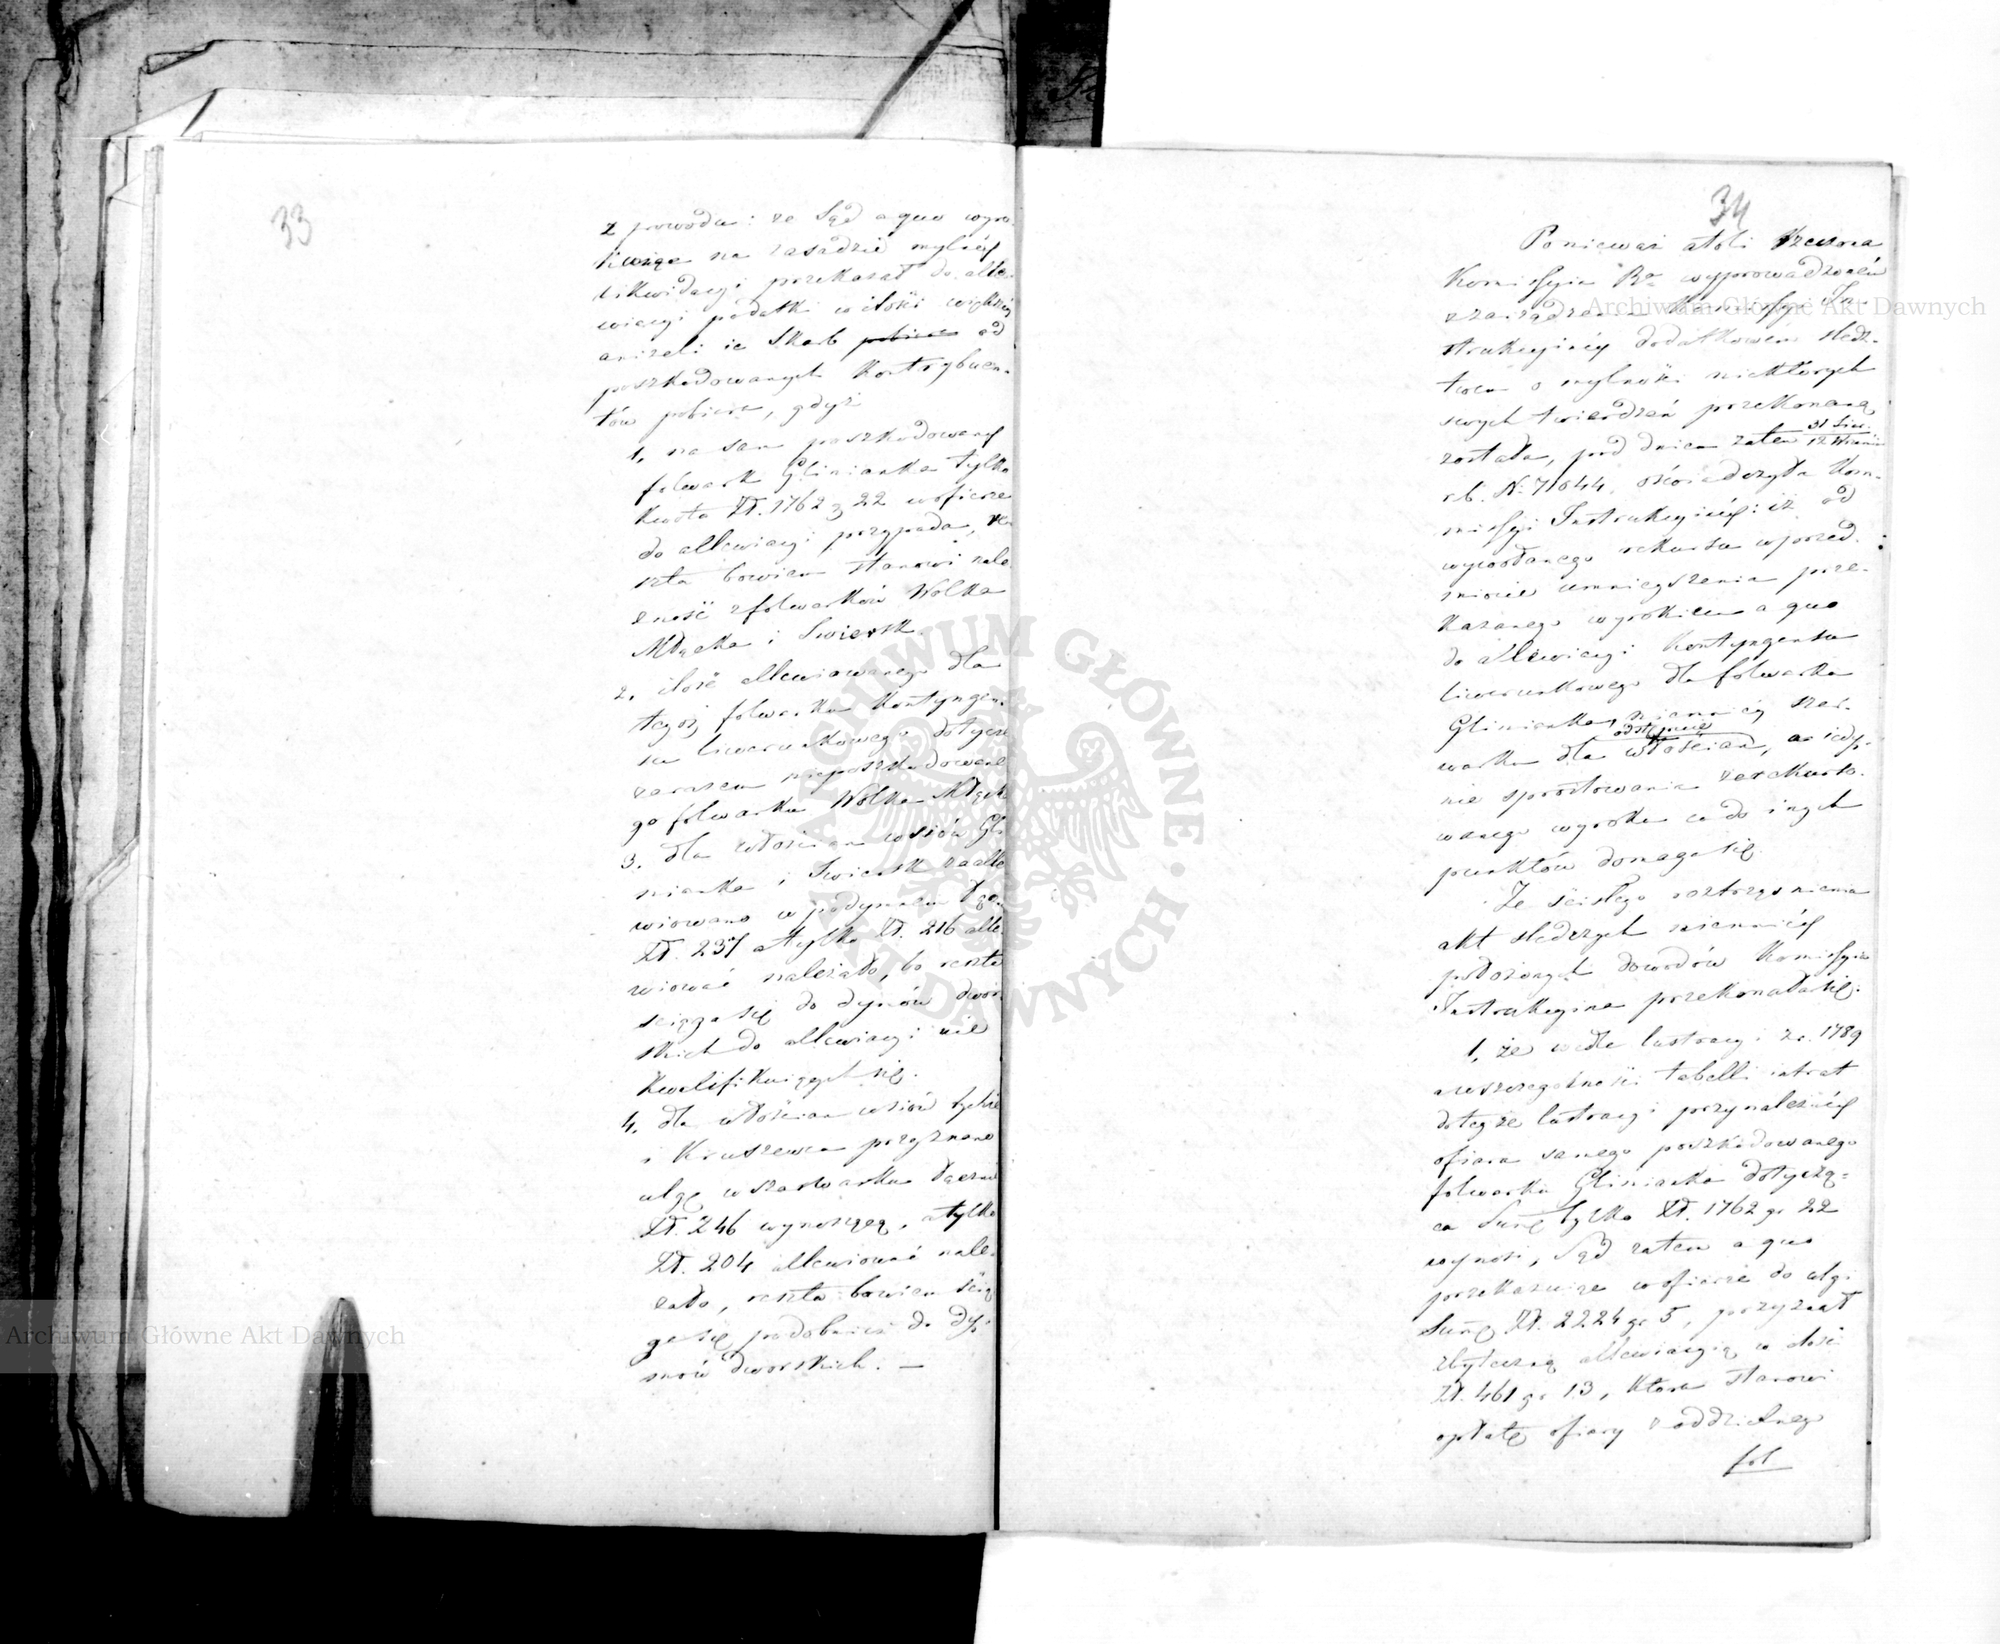 33
z powodu: że Sąd a quo wyro
kując na zasadzie mylnéj
likwidacyi przekazał do alle-
wiacyi podatki w ilości większéj
aniżeli ie Skarb pobiera od
poszkodowanych Kontrybuen-
tów pobiera, gdyż
1, na sam poszkodowany
folwark Glinianka tylko
kwota Zł. 1762 g 22 w ofierze
do allewiacyi przypada, re
szta bowiem stanowi nale
żność z folwarków Wolka
Młącka i Swiersk.
2, ilość allewiowanego dla
tegoż folwarku Kontyngen-
su liwerunkowego dotycze
zarazem nieposzkodowane
go folwarku Wolka Młąck
3, dla włościan wsiów Gli
nianka i Swiersk zaalle
wiowano w podymnem łącz
Zł. 237 a tylko Zł. 216 alle-
wiować należało, bo reszta
ściąga się do dymów dwor
skich do allewiacyi nie
kwalifikuiących się.
4, dla włościan wsiów
i Kruszewca przyznano
ulgę w szarwarku łącznie
Zł. 246 wynoszącą, a tylko
Zł. 204 allewiować nale-
żało, reszta bowiem ścią
ga się podobnież do dy-
mów dworskich. —
34
Ponieważ atoli Rzeczona
Kommissyia Ra wyprowadzoném
z zarządzenia Kommissyi In-
strukcyinéy dodatkowém śledz-
twem o mylności niektórych
swych twierdzeń przekonaną
została, pod dniem zatem 31 Sier. / 12 Wrześni
r.b. No 71044, oświadczyła Kom-
missyi Instrukcyinéj: iż od
wywołanego rekursu w przed-
miocie umnieyszenia prze-
kazanego wyrokiem a quo
do allewiacyi Kontyngensu
liwerunkowego dla folwarku
Glinianka, niemniéy szar-
warku dla włościan, odstępuie, a iedy-
nie sprostowania zarekurso-
wanego wyroku co do innych
punktów domaga się.
Ze ścisłego roztrząśnienia
akt śledczych niemniéj
położonych dowodów Komissyia
Instrukcyina przekonała się.
1, że wedle lustracyi z r. 1789
a w szczególności tabelli intrat
do tey że lustracyi przynależnéj
ofiara samego poszkodowanego
folwarku Glinianka dotyczą-
ca Sumę tylko Zł. 1762 gr 22
wynosi, Sąd zatem a quo
przekazuiąc w ofierze do ulgi
Sumę Zł. 2224 gr 5, przyznał
zbyteczną allewiacyią w ilości
Zł. 461 gr 13, która stanowi
opłatę ofiary z oddzielnego
fol
Archiwum Główne Akt Dawnych
Archiwum Główne Akt Dawnych
ARCHIWUM GŁÓWNE AKT DAWNYCH